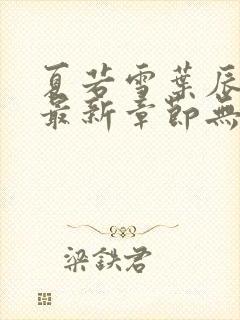 夏若雪葉辰
最新章節無
梁鉄君